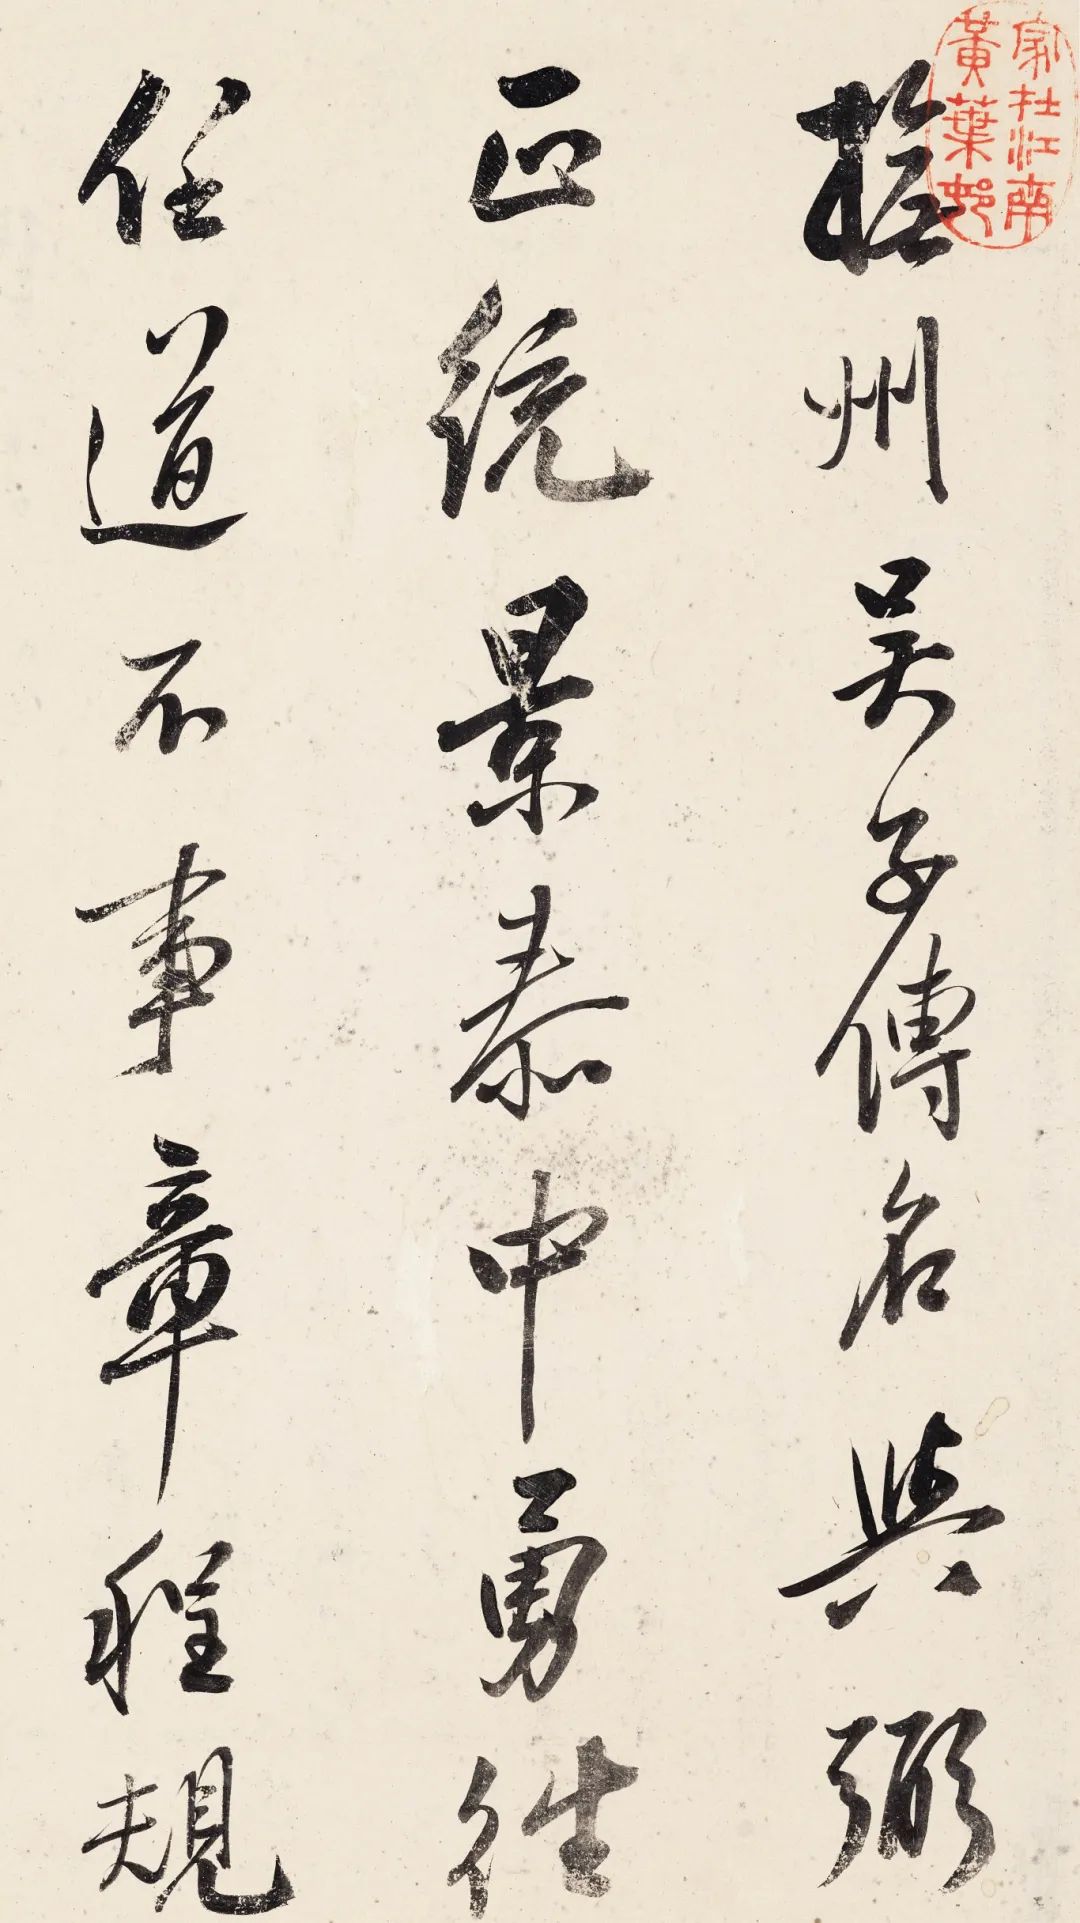 撫州吴子傅名與弼
正統景泰中勇往
任道不事章程規
家在江南
黃葉邨